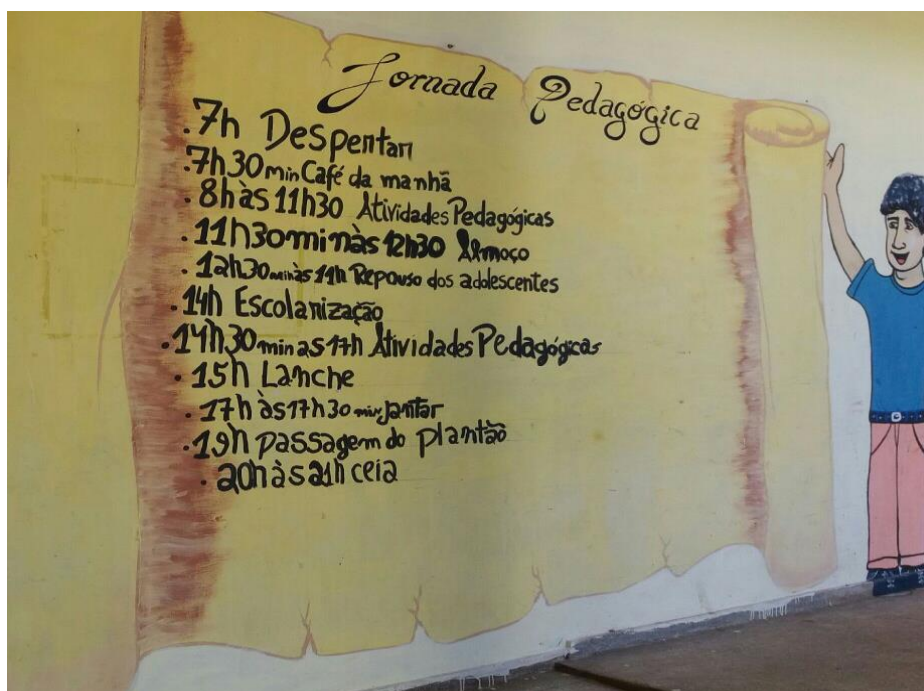 Jornada Pedagógica
.7h Despertar
.7h30min Café da manhã
.8h às 11h30 Atividades Pedagógicas
.11h30min às 12h30 Almoço
.12h30min às 14h Repouso dos adolescentes
.14h Escolarização
.14h30min as 17h Atividades Pedagógicas
.15h Lanche
.17h às 17h30min jantar
.19h passagem do plantão
.20h às 21h ceia